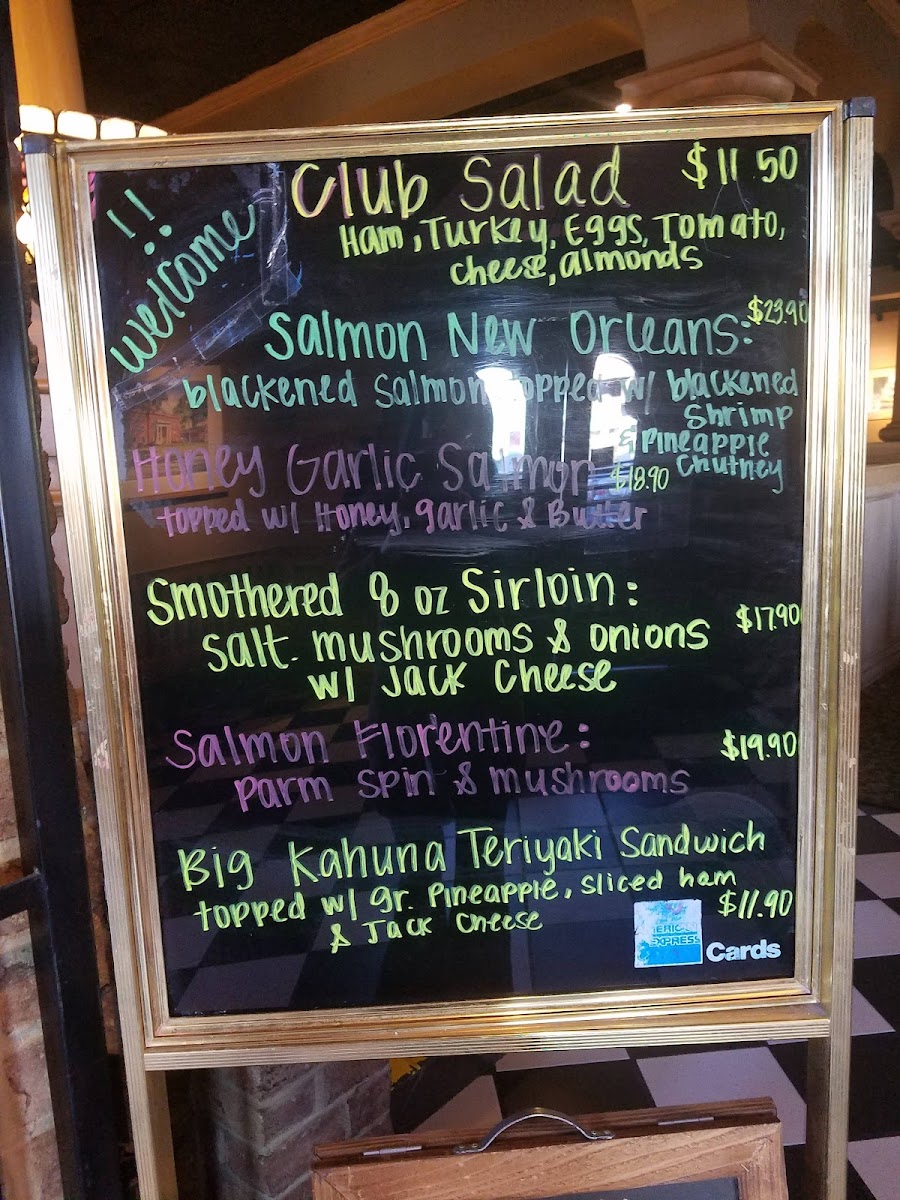 !!
welcome
Club Salad $11.50
Ham, Turkey, Eggs, Tomato,
cheese, almonds
Salmon New Orleans: $23.90
blackened salmon topped w/ blackened
Shrimp
& Pineapple
Chutney
Honey Garlic Salmon $18.90
topped w/ Honey, garlic & Butter
Smothered 8 oz Sirloin:
salt. mushrooms & onions $17.90
w/ Jack Cheese
Salmon Florentine: $19.90
parm spin & mushrooms
Big Kahuna Teriyaki Sandwich
topped w/ gr. Pineapple, sliced ham
& Jack Cheese $11.90
EXPRESS
Cards